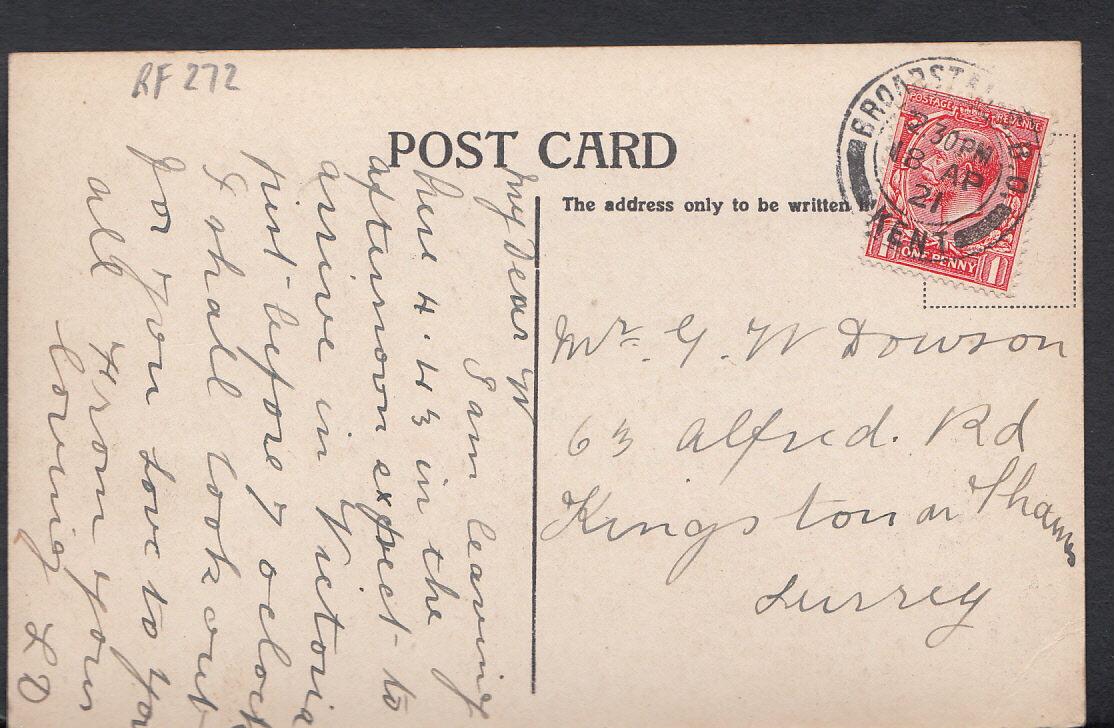 RF 272
POST CARD
The address only to be written
BROADSTAIRS B.O.
2 30 PM
18 AP
21
KENT
POSTAGE REVENUE
1 ONE PENNY 1
Mr. G. W Dowson
63 Alfred. Rd
Kingston on Thames
Surrey
My Dear W
I am leaving
here 4.43 in the
afternoon expect to
arrive in Victoria
just before 7 oclock
I shall look out
for you Love to you
all From your
loving L D